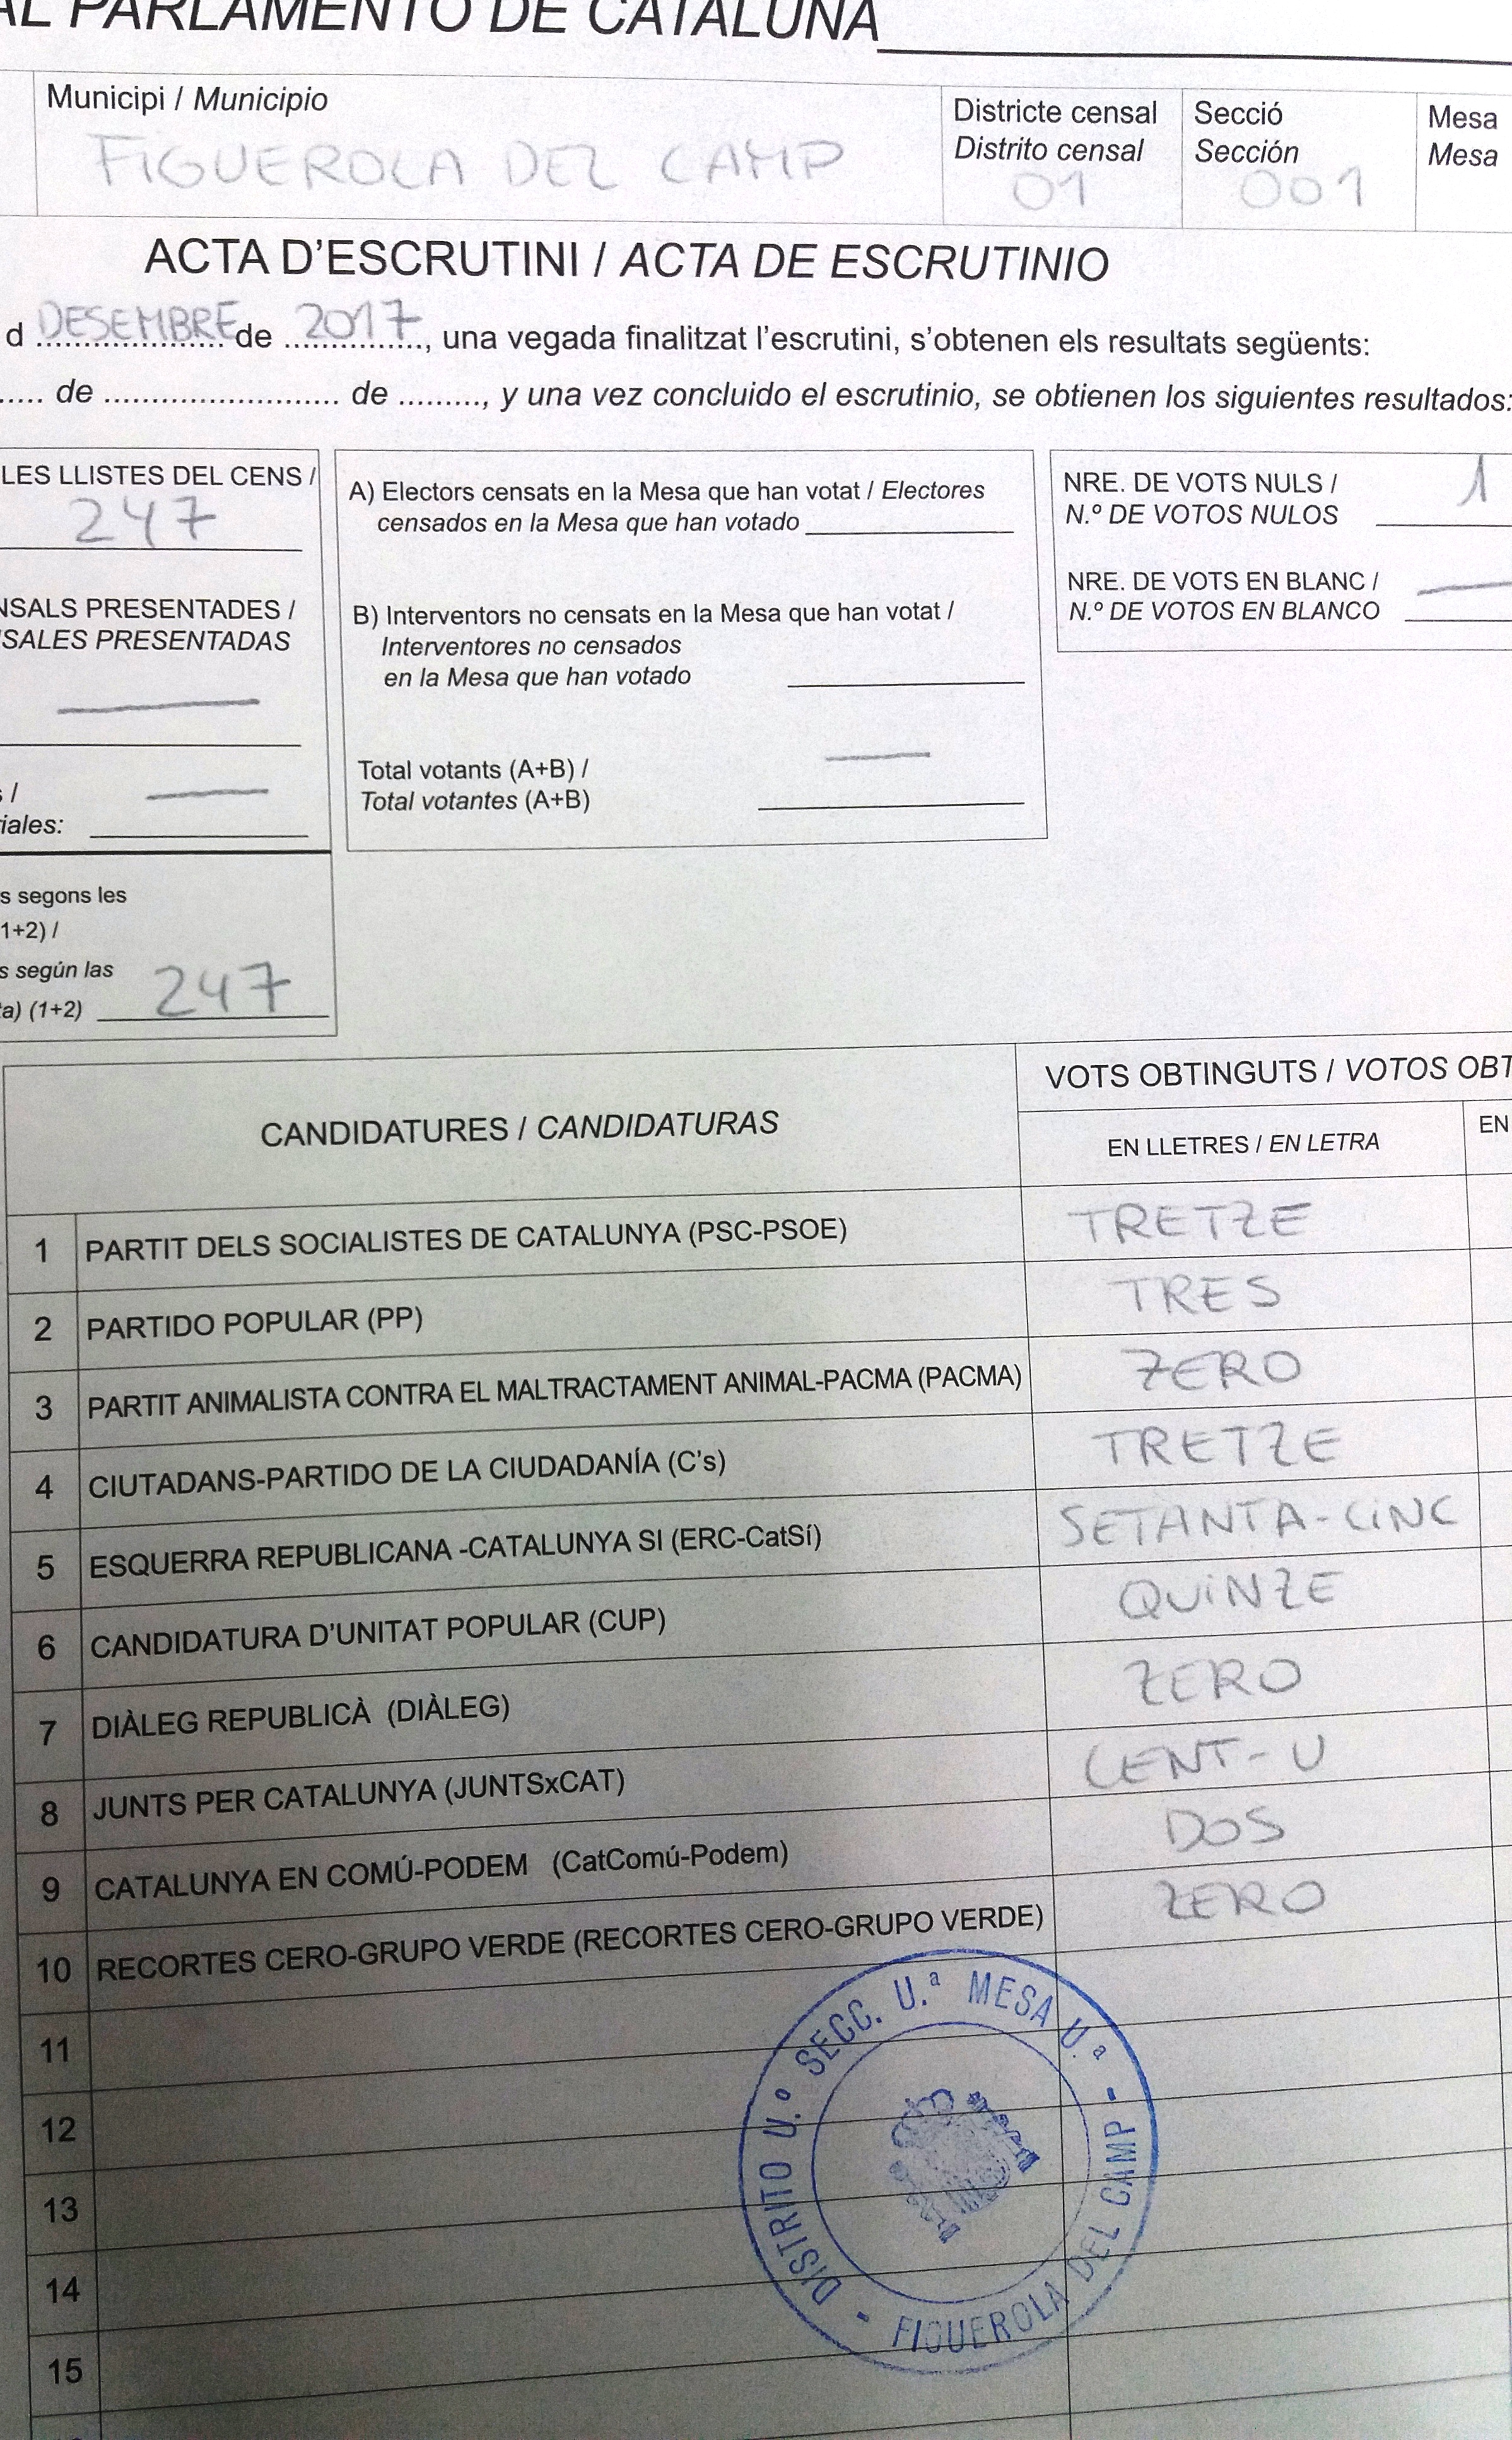 AL PARLAMENTO DE CATALUÑA
Municipi / Municipio
FIGUEROLA DEL CAMP
Districte censal
Distrito censal
01
Secció
Sección
001
Mesa
Mesa
ACTA D'ESCRUTINI / ACTA DE ESCRUTINIO
d DESEMBRE de 2017, una vegada finalitzat l'escrutini, s'obtenen els resultats següents:
..... de ........................ de ........., y una vez concluido el escrutinio, se obtienen los siguientes resultados:
LES LLISTES DEL CENS /
247
NSALS PRESENTADES /
SALES PRESENTADAS
s /
iales:
s segons les
1+2) /
s según las
a) (1+2) 247
A) Electors censats en la Mesa que han votat / Electores
censados en la Mesa que han votado
B) Interventors no censats en la Mesa que han votat /
Interventores no censados
en la Mesa que han votado
Total votants (A+B) /
Total votantes (A+B)
NRE. DE VOTS NULS /
N.º DE VOTOS NULOS
1
NRE. DE VOTS EN BLANC /
N.º DE VOTOS EN BLANCO
CANDIDATURES / CANDIDATURAS
VOTS OBTINGUTS / VOTOS OBT
EN LLETRES / EN LETRA
EN
1 PARTIT DELS SOCIALISTES DE CATALUNYA (PSC-PSOE) TRETZE
2 PARTIDO POPULAR (PP) TRES
3 PARTIT ANIMALISTA CONTRA EL MALTRACTAMENT ANIMAL-PACMA (PACMA) ZERO
4 CIUTADANS-PARTIDO DE LA CIUDADANÍA (C's) TRETZE
5 ESQUERRA REPUBLICANA -CATALUNYA SI (ERC-CatSí) SETANTA-CINC
6 CANDIDATURA D'UNITAT POPULAR (CUP) QUINZE
7 DIÀLEG REPUBLICÀ (DIÀLEG) ZERO
8 JUNTS PER CATALUNYA (JUNTSxCAT) CENT-U
9 CATALUNYA EN COMÚ-PODEM (CatComú-Podem) DOS
10 RECORTES CERO-GRUPO VERDE (RECORTES CERO-GRUPO VERDE) ZERO
11
12
13
14
15
DISTRITO U.º SECC. U.ª MESA U.ª
- FIGUEROLA DEL CAMP -